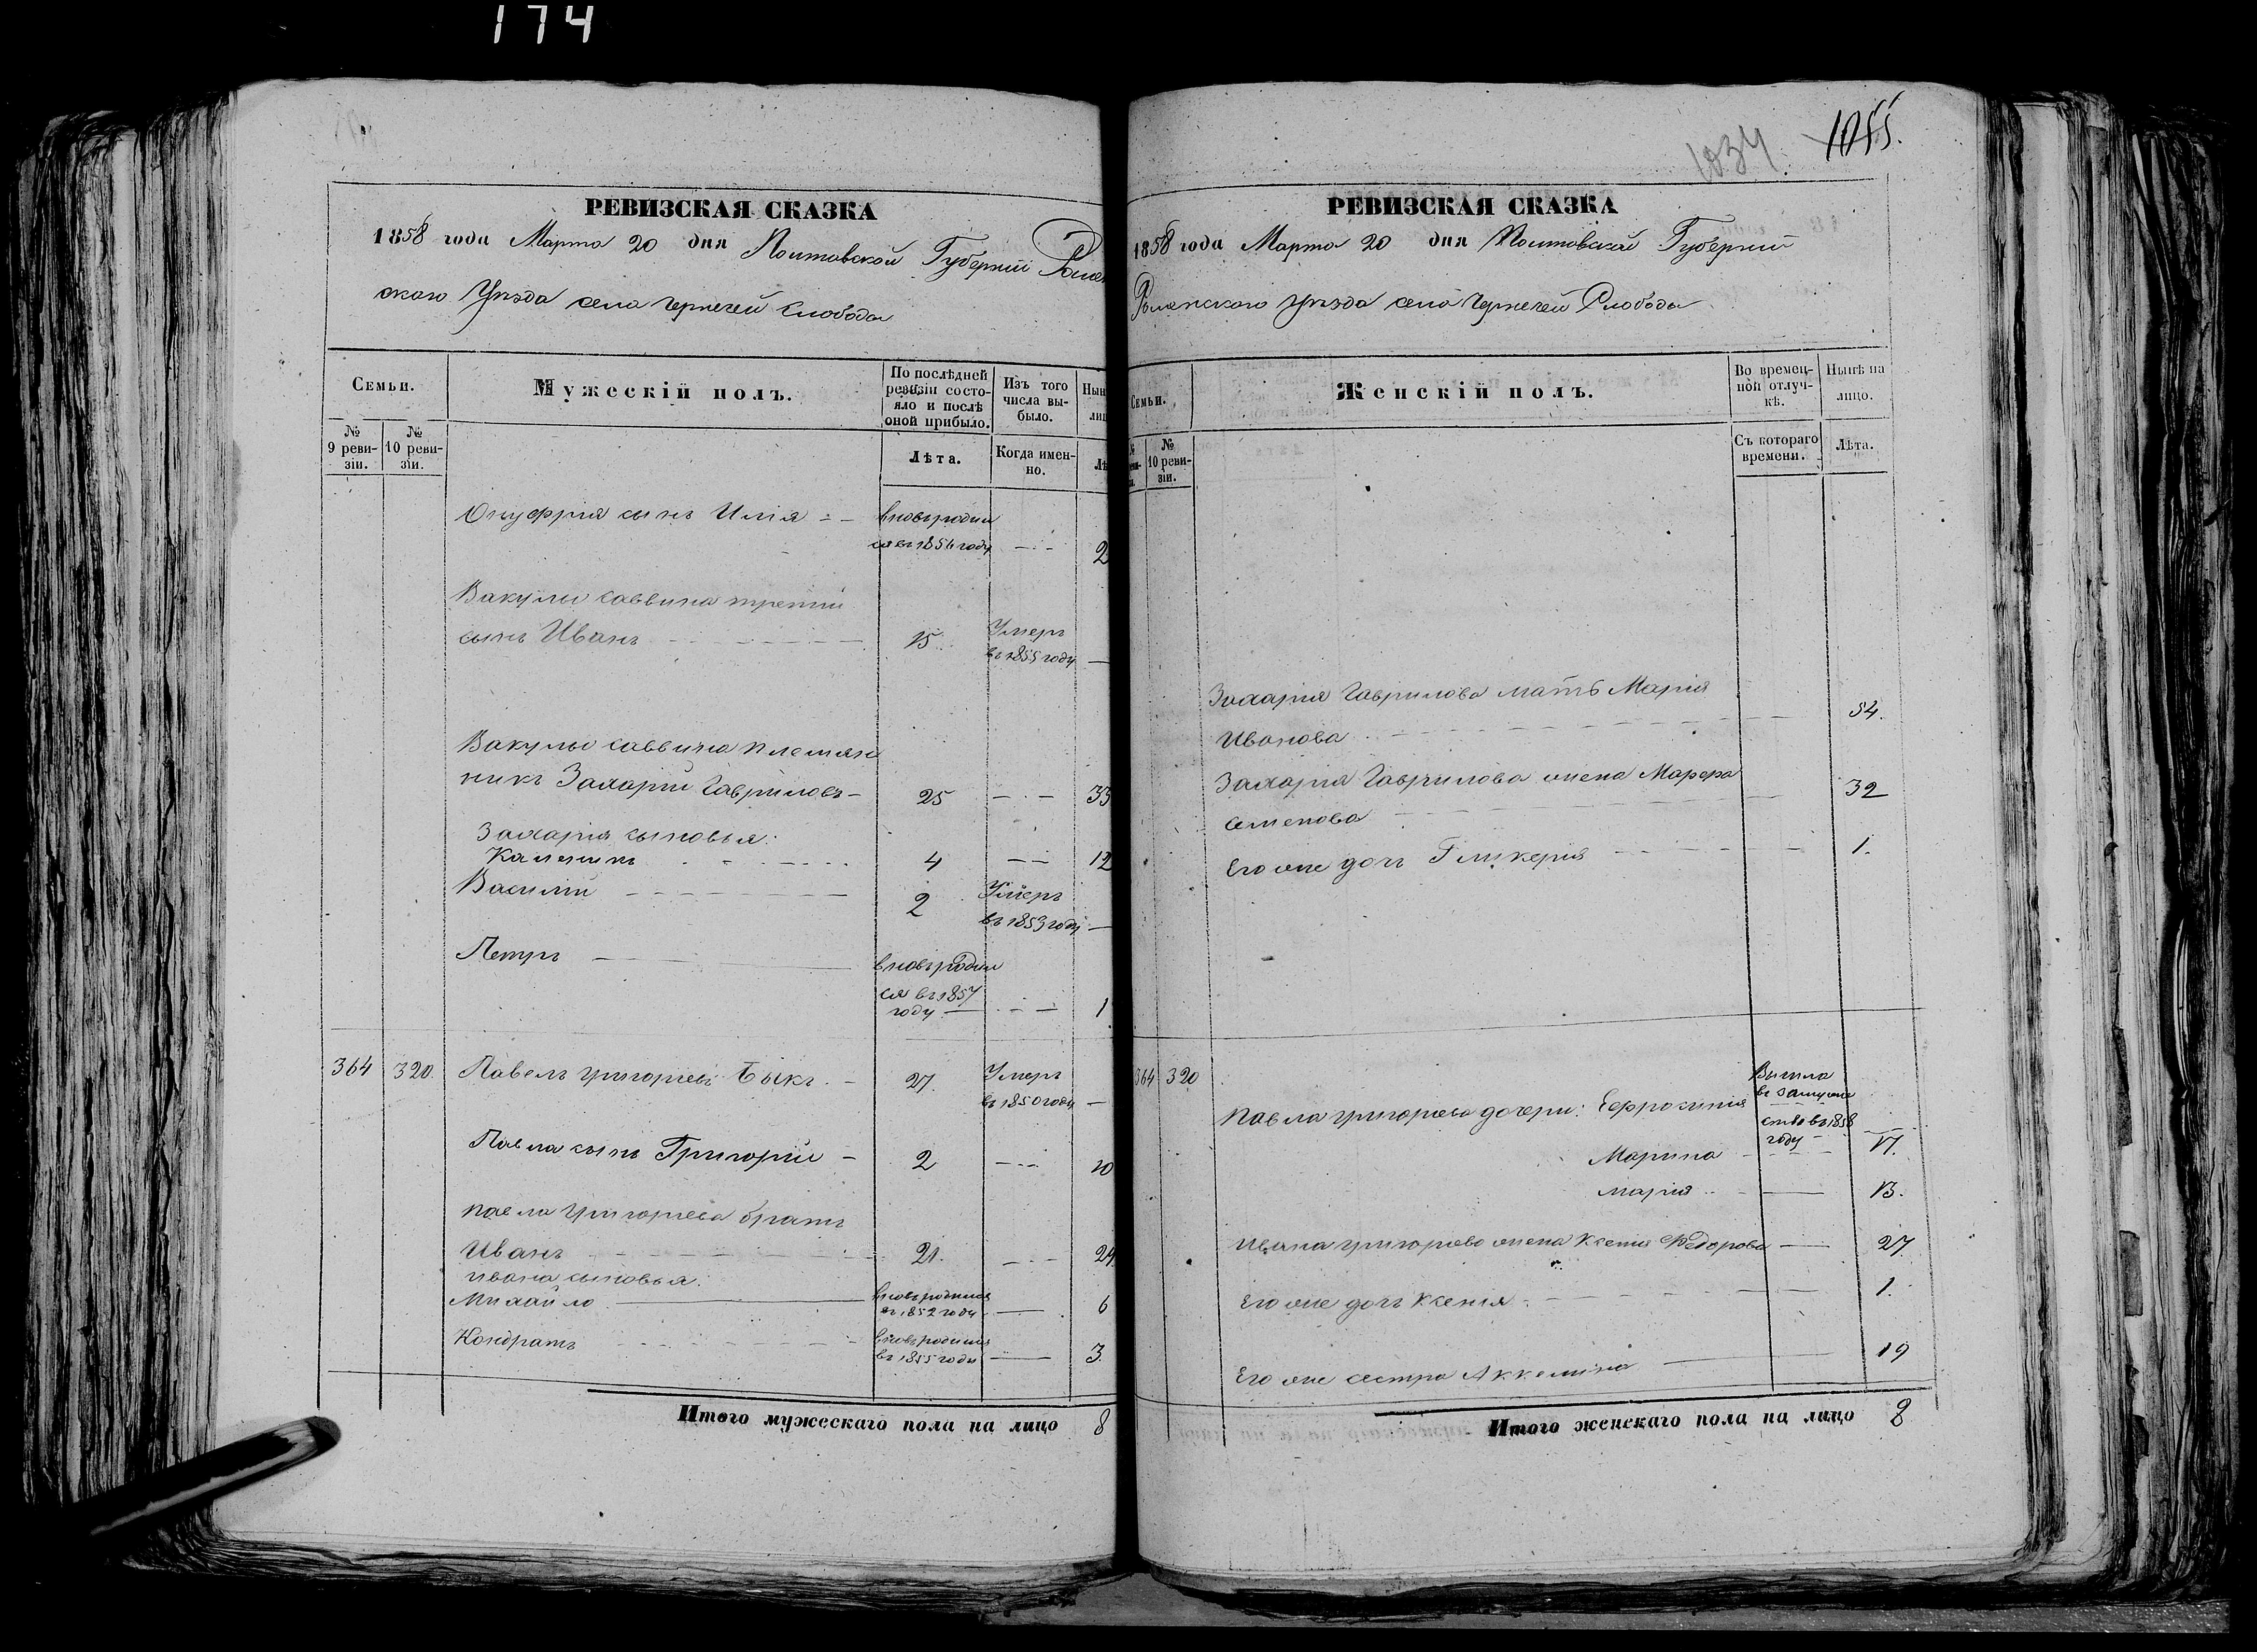 174
РЕВИЗСКАЯ СКАЗКА
1858 года Марта 20 дня Полтавской Губерніи Ромен
скаго Уѣзда села Чернечей Слободы
Семьи.
Мужескій полъ.
По послѣдней ревизіи состояло и послѣ оной прибыло.
Изъ того числа выбыло.
№ 9 ревизіи.
№ 10 ревизіи.
Лѣта.
Когда именно.
Онуфрія сынъ Илія вновь родил
ся въ 1856 году 2
Вакулы Саввина третій
сынъ Иванъ 15 Умеръ
въ 1855 году
Вакулы Саввина племян
никъ Захарій Гавриловъ 25 33
Захарія сыновья:
Каленикъ 4 12
Василій 2 Умеръ
въ 1853 году
Петръ вновь родил
ся въ 1857
году 1
364 320. Павелъ Григорьевъ Быкъ 27. Умеръ
въ 1850 году
Павла сынъ Григорій 2 10
Павла Григорьева братъ
Иванъ 21. 29
Ивана сыновья:
Михайло вновь родился
въ 1852 году 6
Кондратъ вновь родился
въ 1855 году 3.
Итого мужескаго пола на лицо 8
1034 1055.
РЕВИЗСКАЯ СКАЗКА
1858 года Марта 20 дня Полтавской Губерніи
Роменского уѣзда села Чернечей Слободы
Семьи.
Женскій полъ.
Во временной отлучкѣ.
Нынѣ на лицо.
№ 10 ревизіи.
Съ котораго времени.
Лѣта.
Захарія Гаврилова мать Марія
Иванова 54.
Захарія Гаврилова жена Марфа
Семенова 32
Его же дочь Гликерія 1.
364 320
Павла Григорьева дочери: Евфросинія Вышла
въ замуже
ство въ 1858
году
Марина 17.
Марія 13.
Ивана Григорьева жена Ксенія Федорова 27
Его же дочь Ксенія 1.
Его же сестра Аккелина 19
Итого женскаго пола на лицо 8